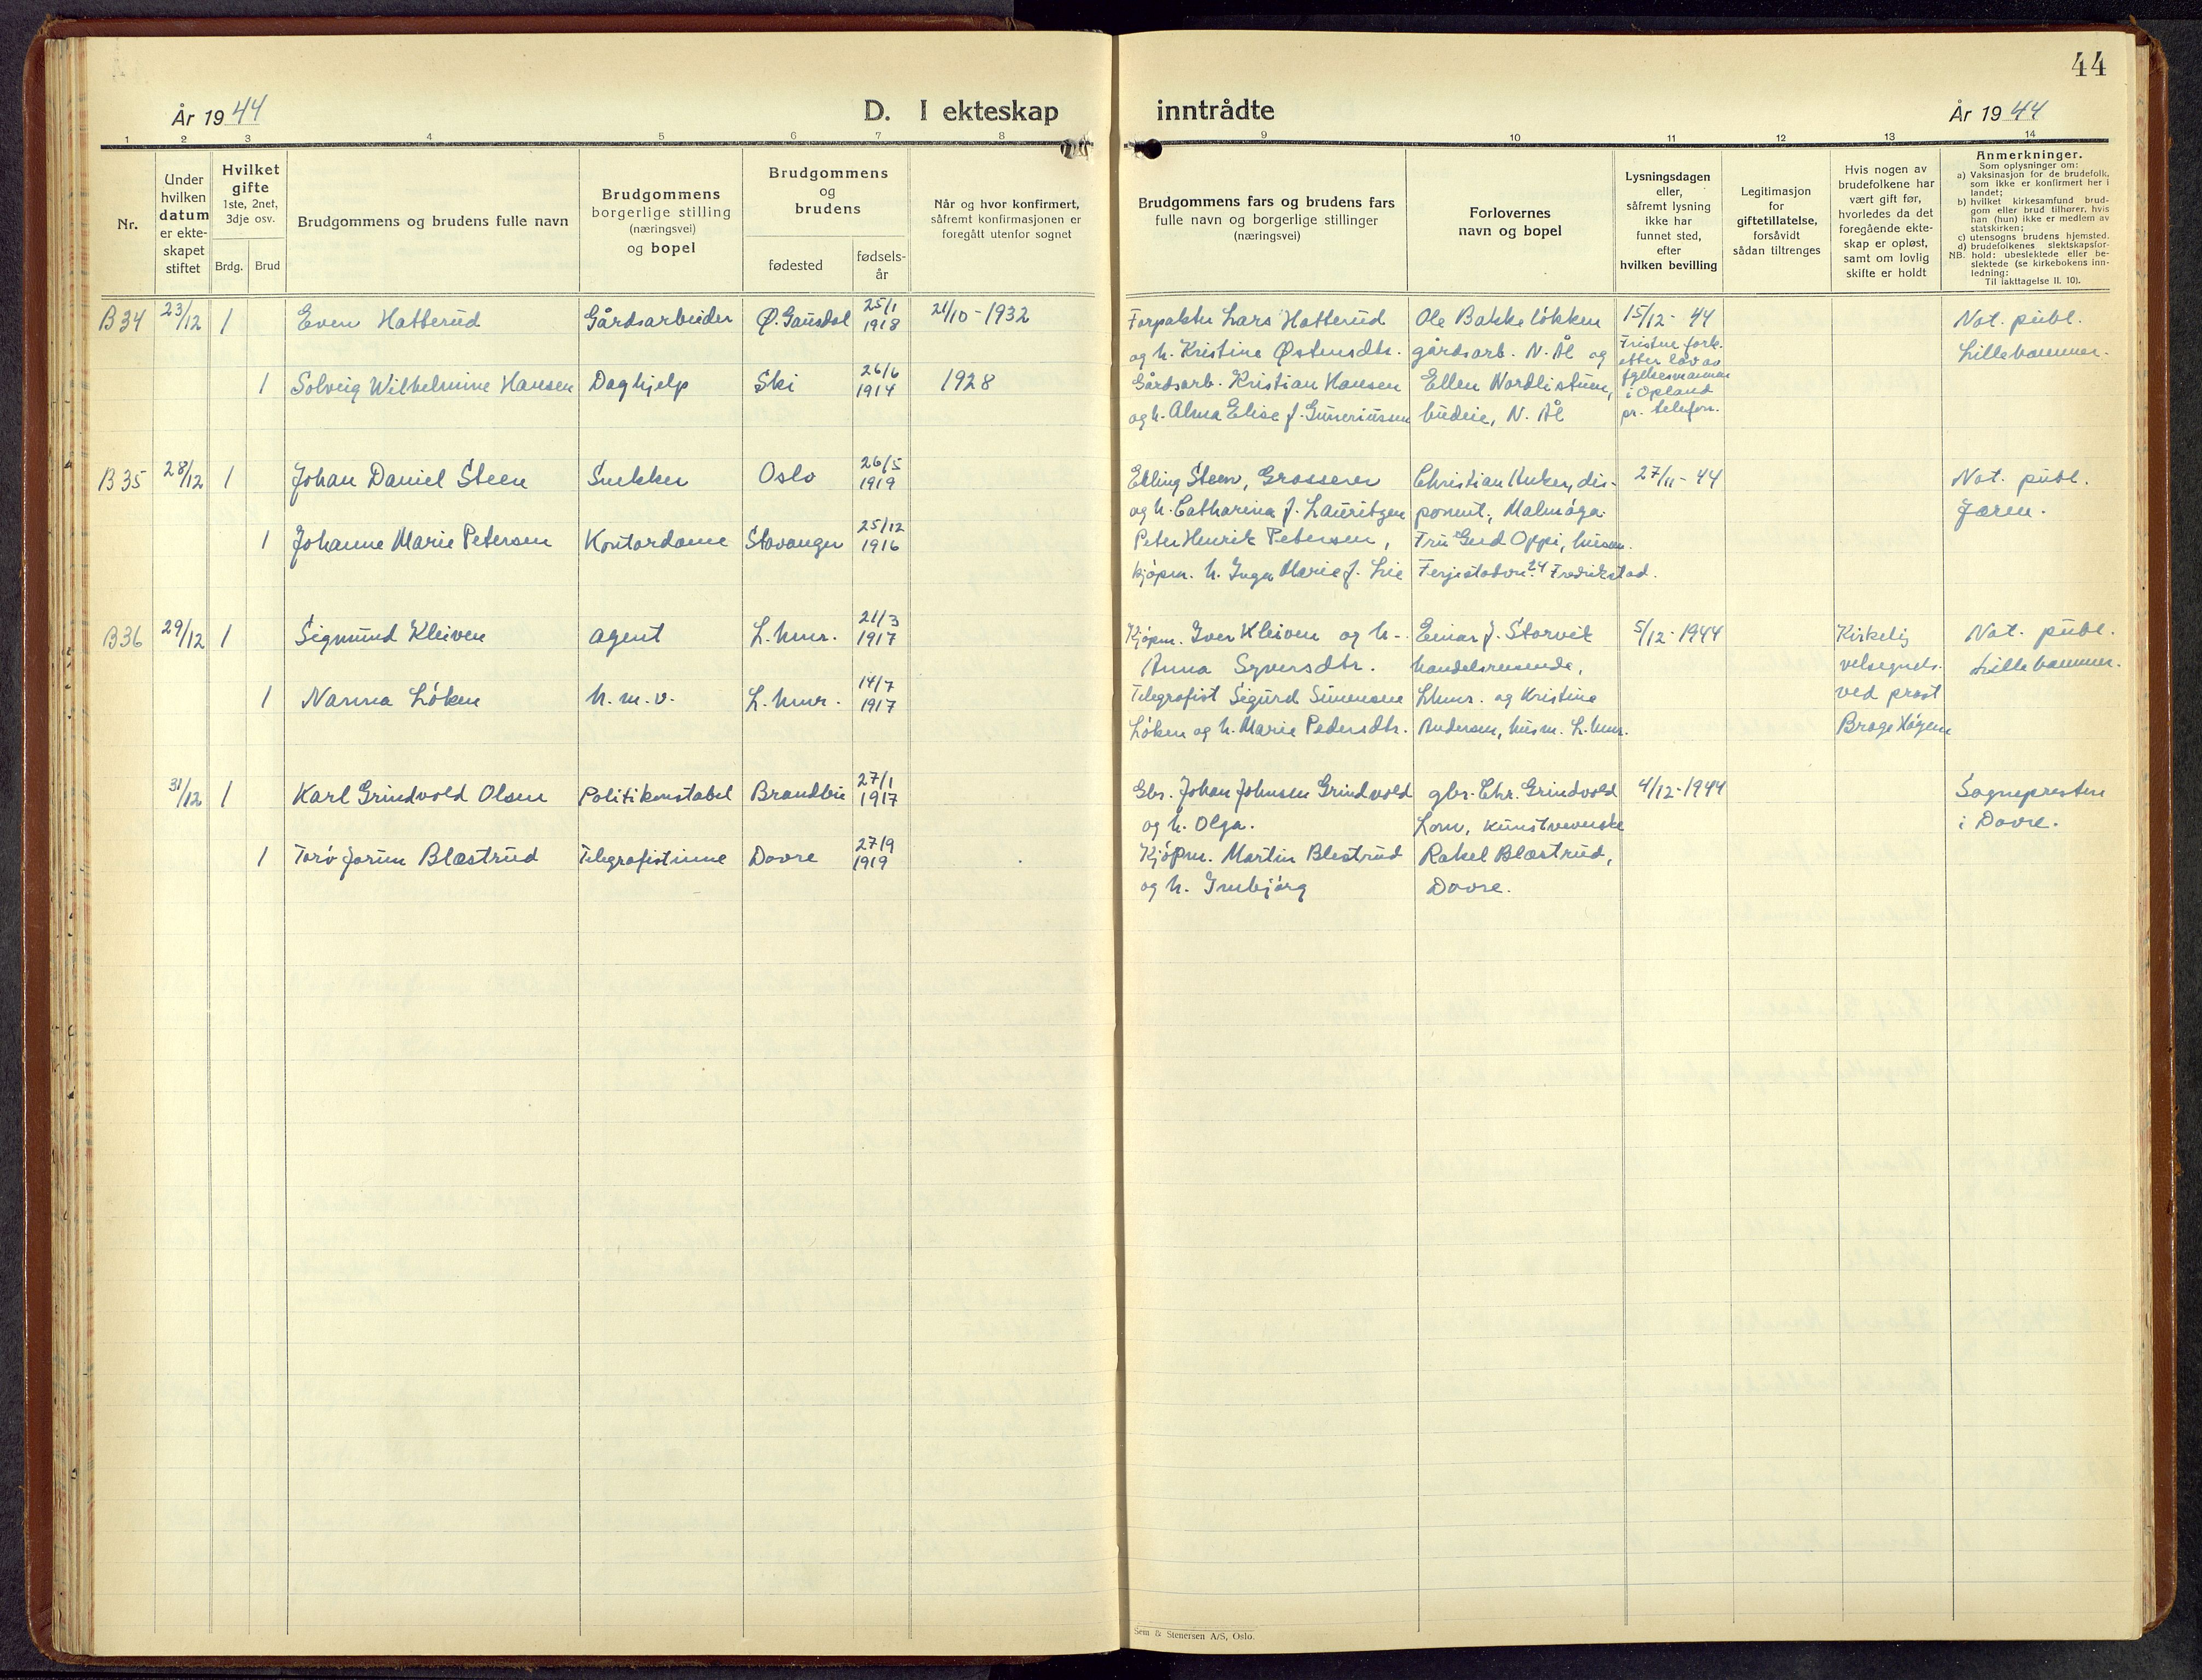 44
År 1944
D. I ekteskap inntrådte
År 1944
1 2 3 4 5 6 7 8 9 10 11 12 13 14
Nr.
Under hvilken datum er ekte-skapet stiftet
Hvilket gifte 1ste, 2net, 3dje osv.
Brdg. Brud
Brudgommens og brudens fulle navn
Brudgommens borgerlige stilling (næringsvei) og bopel
Brudgommens og brudens
fødested
fødsels-år
Når og hvor konfirmert, såfremt konfirmasjonen er foregått utenfor sognet
Brudgommens fars og brudens fars fulle navn og borgerlige stillinger (næringsvei)
Forlovernes navn og bopel
Lysningsdagen eller, såfremt lysning ikke har funnet sted, efter hvilken bevilling
Legitimasjon for giftetillatelse, forsåvidt sådan tiltrenges
Hvis nogen av brudefolkene har vært gift før, hvorledes da det foregående ekte-skap er opløst, samt om lovlig skifte er holdt
Anmerkninger.
Som oplysninger om:
a) Vaksinasjon for de brudefolk, som ikke er konfirmert her i landet;
b) hvilket kirkesamfund brud-gom eller brud tilhører, hvis han (hun) ikke er medlem av statskirken;
c) utensogns brudens hjemsted.
d) brudefolkenes slektskapsfor-
NB. hold: ubeslektede eller be-slektede (se kirkebokens inn-ledning:
Til iakttagelse II. 10).
B34 23/12 1 Even Hatterud Gårdsarbeider Ø. Gausdal 25/1 1918 21/10-1932 Forpakter Lars Hatterud Ole Bakkeløkken 15/12-44 Not. publ.
og h. Kristine Østensdtr. gårdsarb. N. Ål og Fristen fork. Lillehammer.
etter lov av
1 Solveig Wilhelmine Hansen Daghjelp Ski 26/6 1914 1928 Gårdsarb. Kristian Hansen Ellen Nordlistuen, fylkesmannen
i Opland
og h. Alma Elise f. Guneriussen budeie, N. Ål pr. telefon.
B35 28/12 1 Johan Daniel Steen Snekker Oslo 26/5 1919 Elling Steen, Grosserer Christian Anker, dis- 27/11-44 Not. publ.
og h. Catharina f. Lauritzen ponent, Malmøya. Jaren.
1 Johanne Marie Petersen Kontordame Stavanger 25/12 1916 Peter Henrik Petersen, Fru Gerd Oppi, husm.
kjøpm. h. Inga Marie f. Lie Ferjestadvn. 24 Fredrikstad.
B36 29/12 1 Sigmund Kleiven agent L.hmr. 21/3 1917 Kjøpm. Iver Kleiven og h. Einar J. Storvik 5/12-1944 Kirkelig Not. publ.
Anna Syversdtr. handelsreisende, velsegnels. Lillehammer.
1 Nanna Løken h.m.v. L.hmr. 14/7 1917 Telegrafist Sigurd Simensen Lhmr. og Kristine ved prost
Løken og h. Marie Pedersdtr. Andersen, husm. L.hmr. Brage Høyem
31/12 1 Karl Grindvold Olsen Politikonstabel Brandbu 27/1 1917 Gbr. Johan Johnsen Grindvold gbr. Chr. Grindvold 4/12-1944 Sognepresten
og h. Olga. Lom, kunstveverske i Dovre.
1 Torø Jorun Blæstrud Telegrafistinne Dovre 27/9 1919 Kjøpm. Martin Blestrud Rakel Blæstrud,
og h. Imbjørg Dovre.
Sem & Stenersen A/S, Oslo.